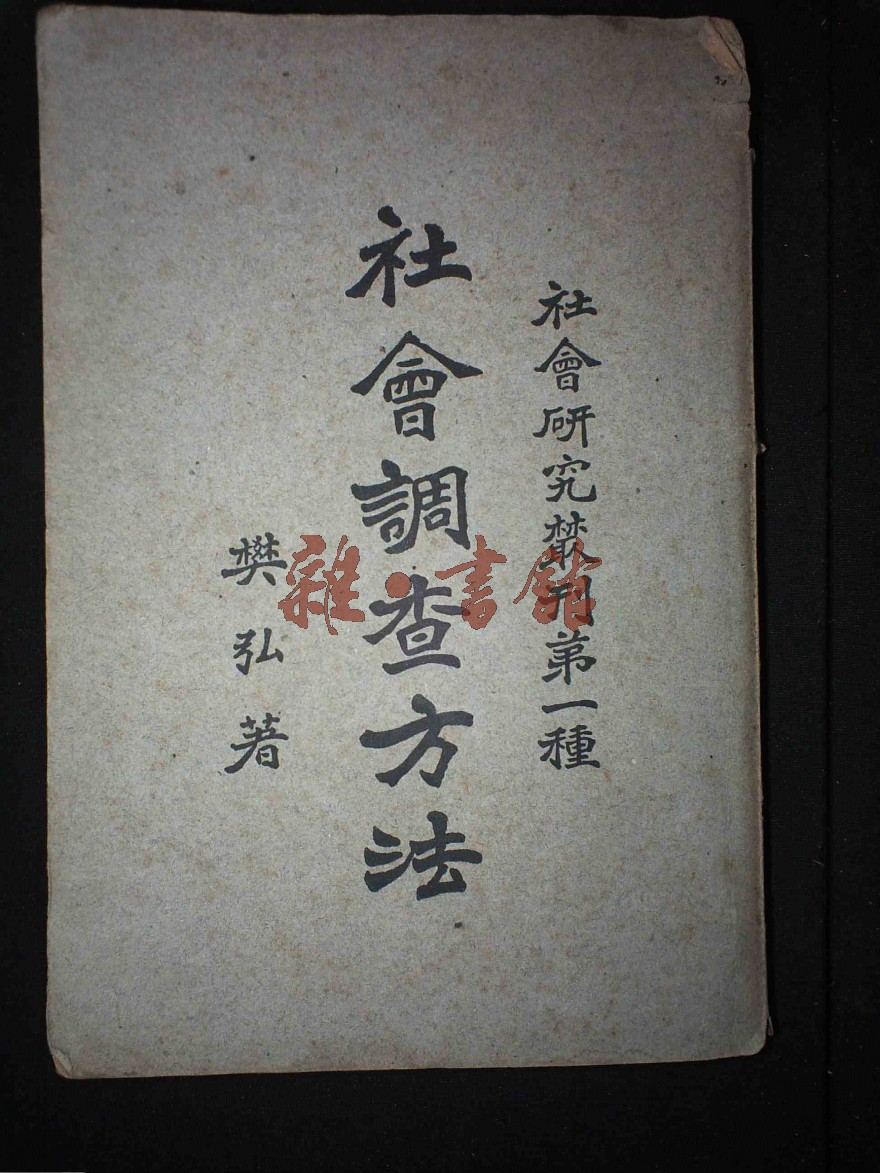 社會研究叢刊第一種
社會調查方法
樊弘著
雜·書館